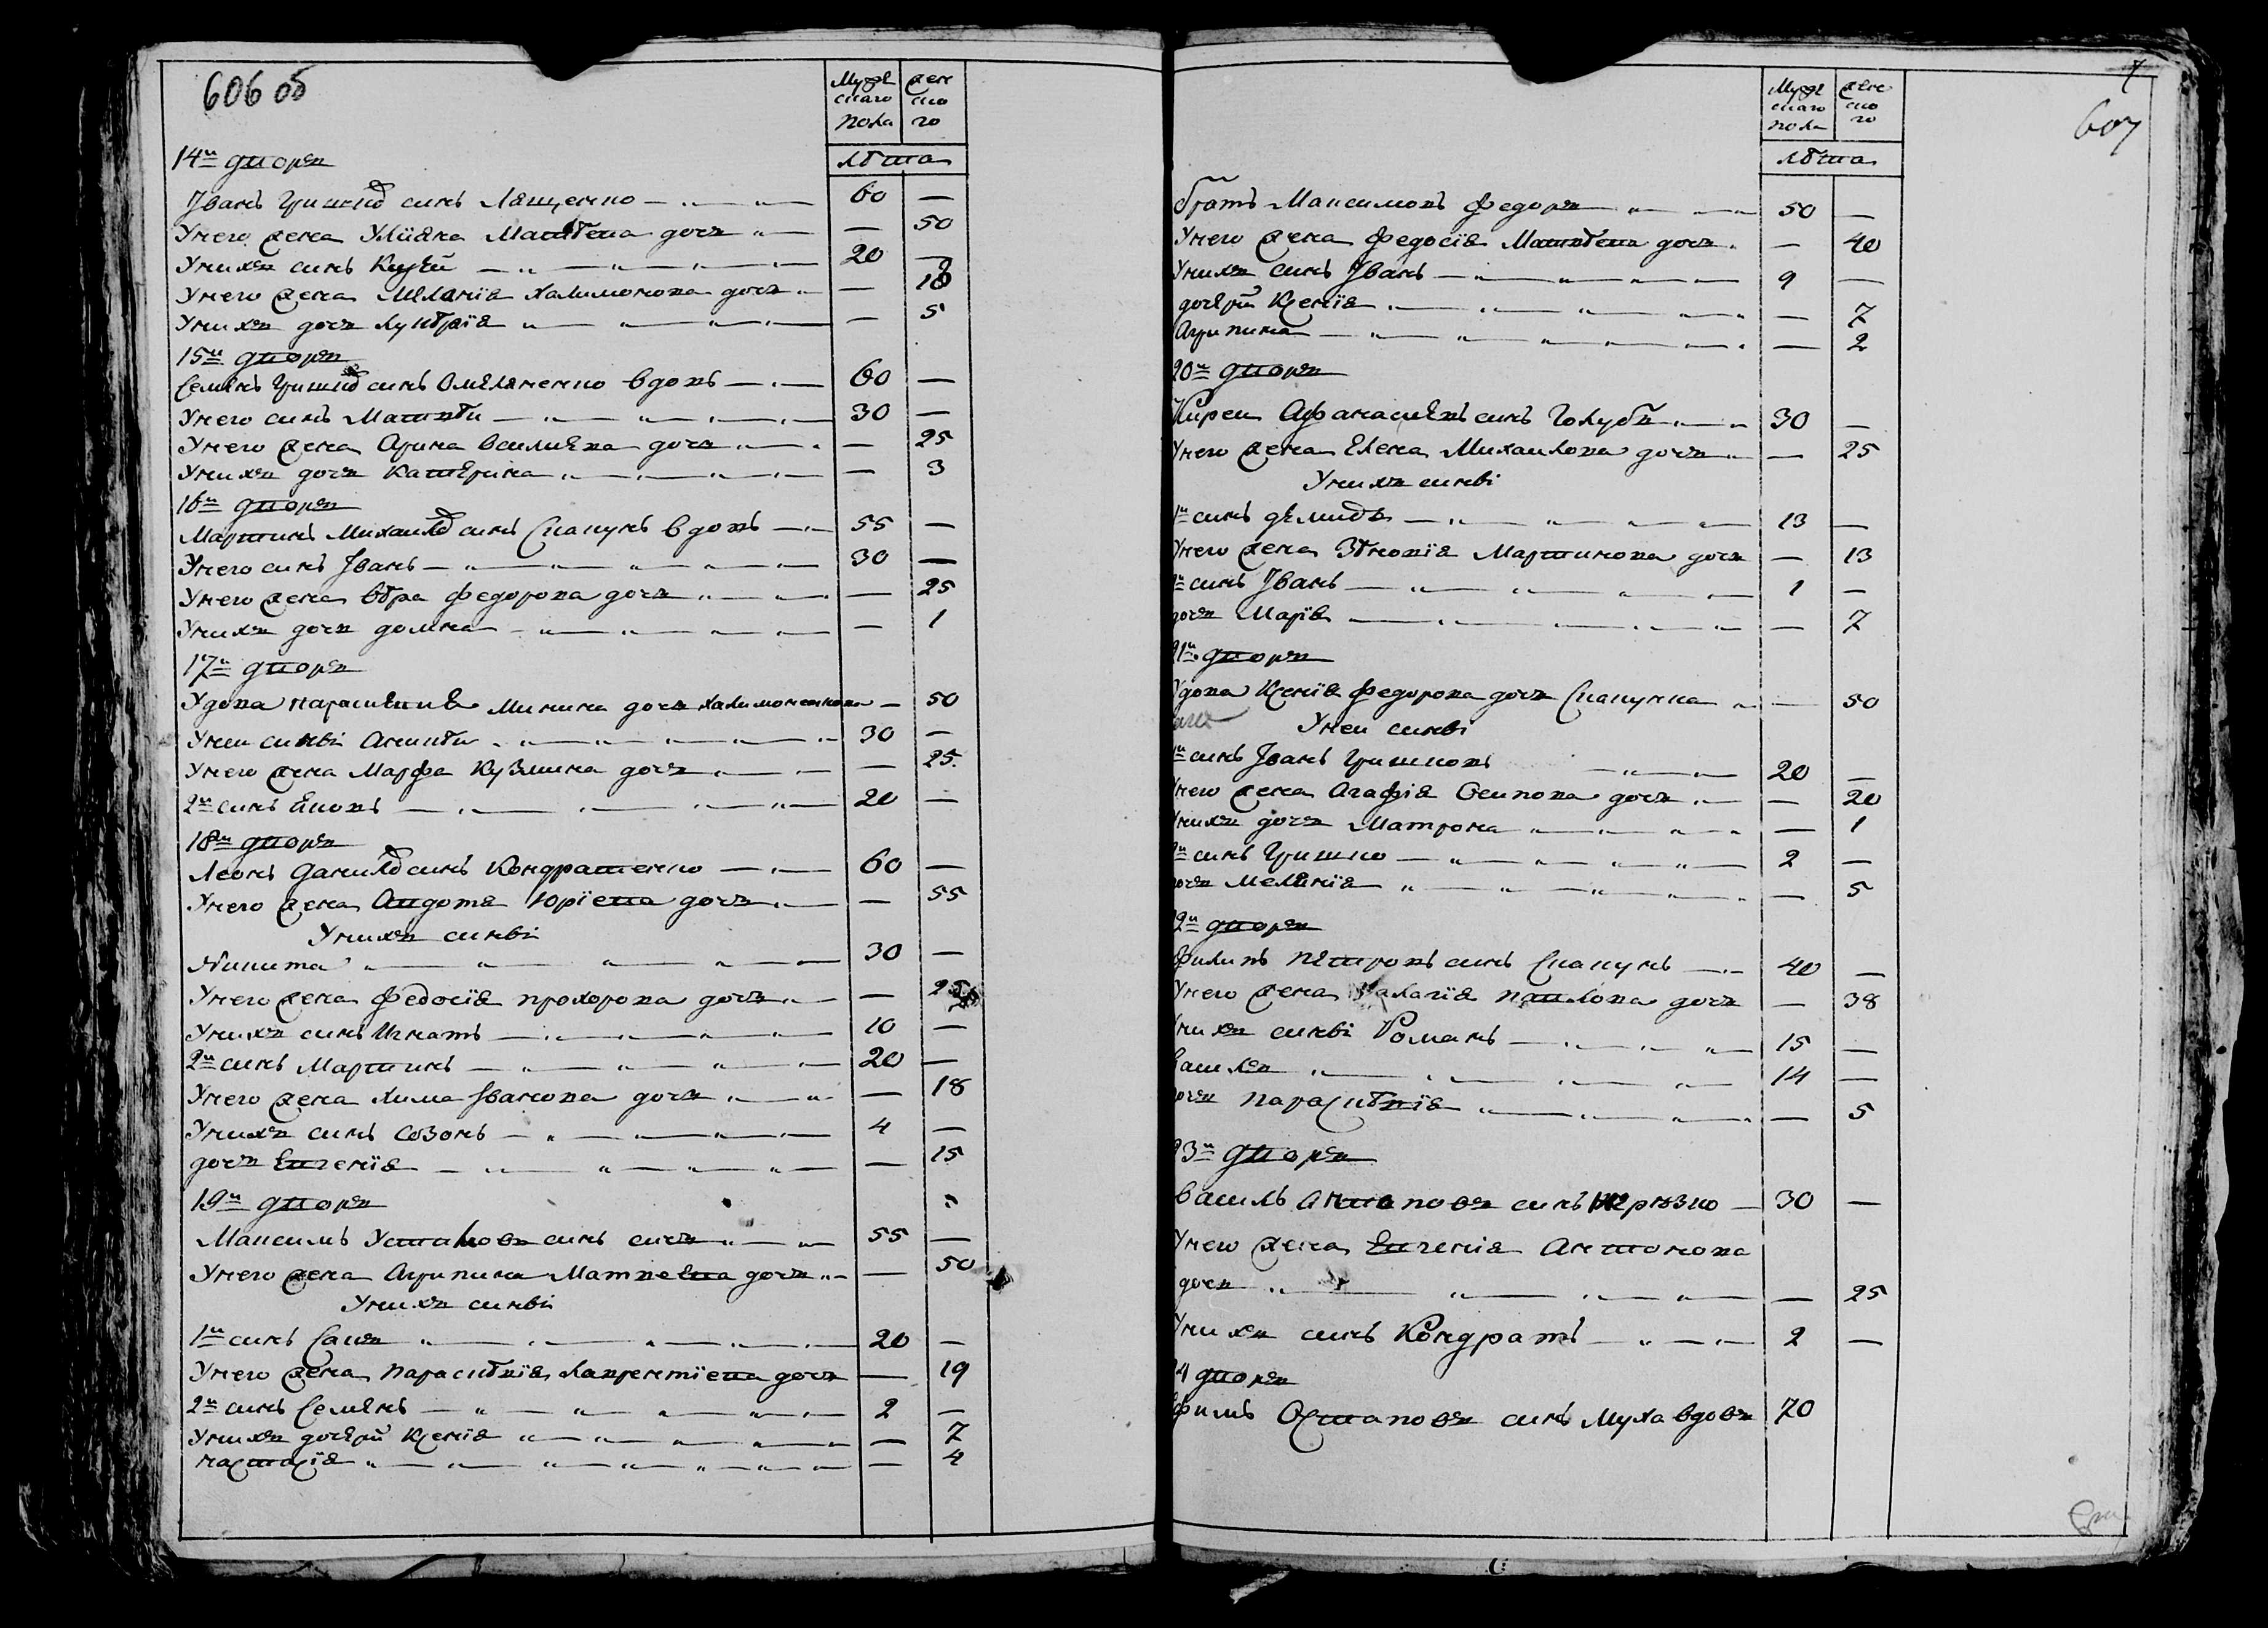 606 об
Мужескаго пола
женского
лѣта
14й дворъ
Іванъ Гришков синъ Лященко 60 —
У него жена Уліяна Матвѣева дочъ — 50
У нихъ синъ 20 —
У него жена Меланія Халимонова дочъ — 18
У нихъ дочъ Лукѣрія — 5
15й дворъ
Семенъ Гришков синъ Омеляненко вдовъ 60 —
У него синъ Матвѣи 30 —
У него жена Арина Василиева дочъ — 25
У нихъ дочъ Катерина — 3
16й дворъ
Мартинъ Михаилов синъ Скапунъ вдовъ 55 —
У него синъ Іванъ 30 —
У него жена Вѣра Федорова дочъ — 25
У нихъ дочъ Домна — 1
17й дворъ
Удова Парасковия Минина дочъ Халимоненкова — 50
У неи синві Аникѣи 30 —
У него жена Марфа Кузмина дочъ — 25
2й синъ 20 —
18й дворъ
Леонъ Данилов синъ Кондратенко 60 —
У него жена Авдотя Юріева дочъ — 55
У нихъ синві
Никита 30 —
У него жена Федосія Прохорова дочъ —
У нихъ синъ Игнатъ 10 —
2й синъ Мартинъ 20 —
У него жена Хима Іванова дочъ — 18
У нихъ синъ Созонъ 4 —
дочъ Евгенія — 15
19й дворъ
Максимъ синъ 55 —
У него жена Агрипина Матвеева дочъ — 50
У нихъ синві
1й синъ Сава 20 —
У него жена Парасковія Лаврентіева дочъ — 19
2й синъ Семенъ 2 —
У нихъ дочери Ксенія — 7
Настасія — 4
607
Мужескаго пола
женского
лѣта
братъ Максимовъ Федоръ 50 —
У него жена Федосія Матвѣева дочъ — 40
У нихъ синъ Іванъ 9 —
дочери Ксенія — 7
Агрипина — 2
20й дворъ
Киреи Афанасиевъ синъ Голубъ 30 —
У него жена Елена Михаилова дочъ — 25
У нихъ синві
1й синъ Демидъ 13 —
У него жена Зѣновія Мартинова дочъ — 13
синъ Іванъ 1 —
дочъ Марія — 7
21й дворъ
Удова Ксенія Федорова дочъ Скапунка — 50
У неи синві
синъ Іванъ Гришковъ 20 —
У него жена Агафія Осипова дочъ — 20
У нихъ дочъ Матрона — 1
синъ Гришко 2 —
дочъ Меланія — 5
2й дворъ
Филипъ Петровъ синъ Скапунъ 40 —
У него жена Палагія Павлова дочъ — 38
У нихъ синві Романъ 15 —
14 —
дочъ Парасковія — 5
23й дворъ
Василъ синъ 30 —
У него жена Евгенія Антонова
дочъ — 25
У нихъ синъ Кондратъ 2 —
дворъ
Остаповъ синъ Муха вдовъ 70